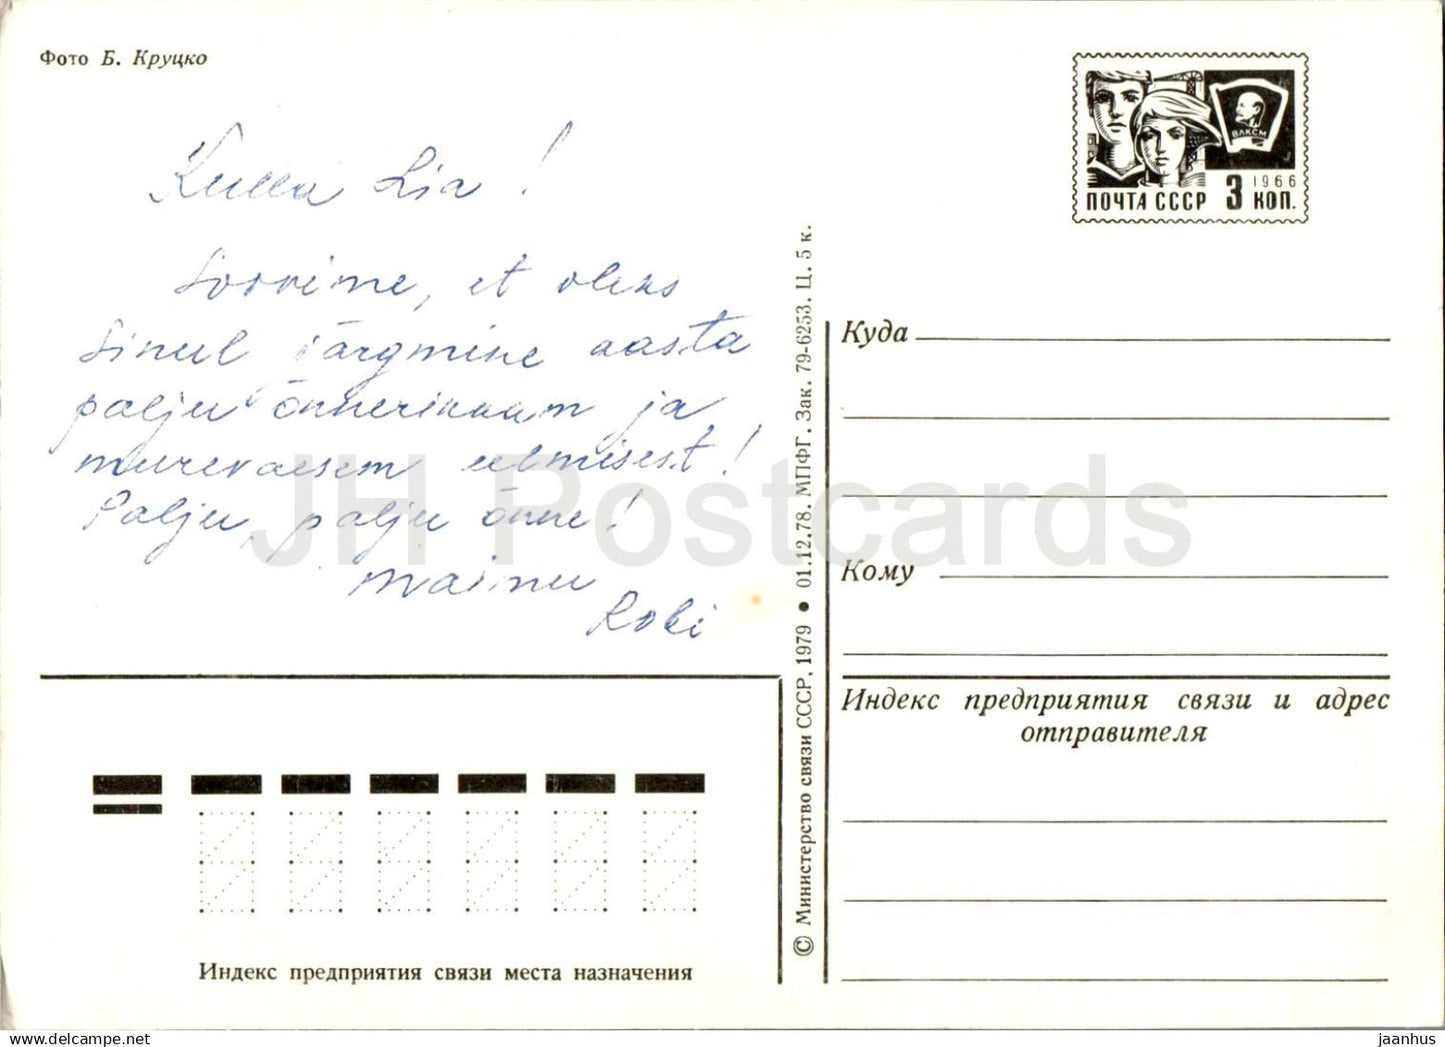 Фото Б. Круцко
ВЛКСМ
ПОЧТА СССР 3 1966 КОП.
Kulla Lia!
Soovime, et oleks
Sinul järgmine aasta
palju õnnerikkam ja
murevaesem eelmisest!
Palju, palju õnne!
Mainu
Robi
JH Postcards
Куда
Кому
Индекс предприятия связи и адрес
отправителя
© Министерство связи СССР, 1979 ● 01.12.78. МПФГ. Зак. 79-6253. Ц. 5 к.
Индекс предприятия связи места назначения
www.delcampe.net
jaanhus